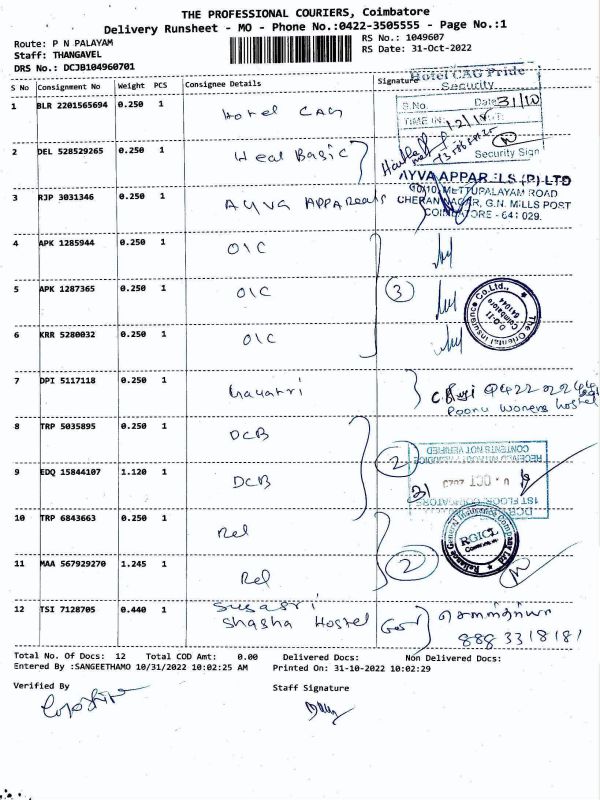 THE PROFESSIONAL COURIERS, Coimbatore
Delivery Runsheet - MO - Phone No.:0422-3505555 - Page No.:1
Route: P N PALAYAM
RS No.: 1049607
Staff: THANGAVEL
RS Date: 31-Oct-2022
DRS No.: DCJB104960701
S No Consignment No Weight PCS Consignee Details Signature
Hotel CAG Pride
Security
1 BLR 2201565694 0.250 1 Hotel CAG
S.No. Date 31/10
TIME IN:
2 DEL 528529265 0.250 1 Heal Basic
Security Sign
AYVA APPARELS (P) LTD
60/10, METTUPALAYAM ROAD
3 RJP 3031346 0.250 1 AYVA APPAReals
CHERAN NAGAR, G.N. MILLS POST
COIMBATORE - 641 029.
4 APK 1285944 0.250 1 OIC
5 APK 1287365 0.250 1 OIC
3
The Oriental Insurance Co.Ltd.,
D.O-II
Coimbatore
641044
6 KRR 5280032 0.250 1 OIC
7 DPI 5117118 0.250 1 Gayatri
Womens Hostel
8 TRP 5035895 0.250 1 DCB
2
RECEIVED WITHOUT PREJUDICE
CONTENTS NOT VERIFIED
9 EDQ 15844107 1.120 1 DCB
31 OCT
1ST FLOOR
10 TRP 6843663 0.250 1 Rel
Reliance General Insurance Company Ltd
RGICL
11 MAA 567929270 1.245 1 Rel
2
12 TSI 7128705 0.440 1 Susasri
Shasha Hostel
8883318181
Total No. Of Docs: 12 Total COD Amt: 0.00 Delivered Docs: Non Delivered Docs:
Entered By :SANGEETHAMO 10/31/2022 10:02:25 AM Printed On: 31-10-2022 10:02:29
Verified By
Staff Signature